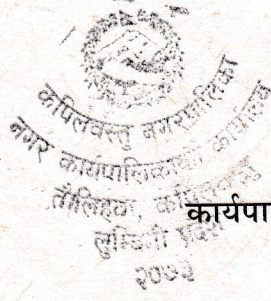 कपिलवस्तु नगरपालिका
नगर कार्यपालिकाको कार्यालय
तौलिहवा, कपिलवस्तु
लुम्बिनी प्रदेश
२०७३
कार्यपा